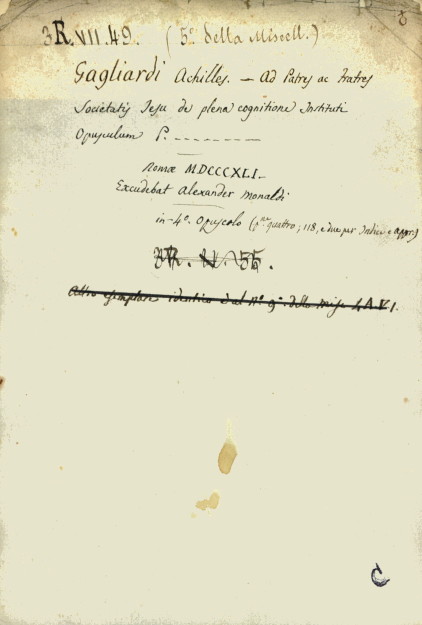 3R.VII.49. (5º della Miscell.)
Gagliardi Achilles. — Ad Patres ac Fratres
Societatis Jesu de plena cognitione Instituti
Opusculum P. _ _ _ _ _ _ _ _
Romæ MDCCCXLI.
Excudebat Alexander Monaldi
in-4º. Opuscolo (quattro; 118, e due per Indice e Appr.)
3R. 55.
Altro esemplare identico è al nº 9º della Misc. 4.A.VI.
C